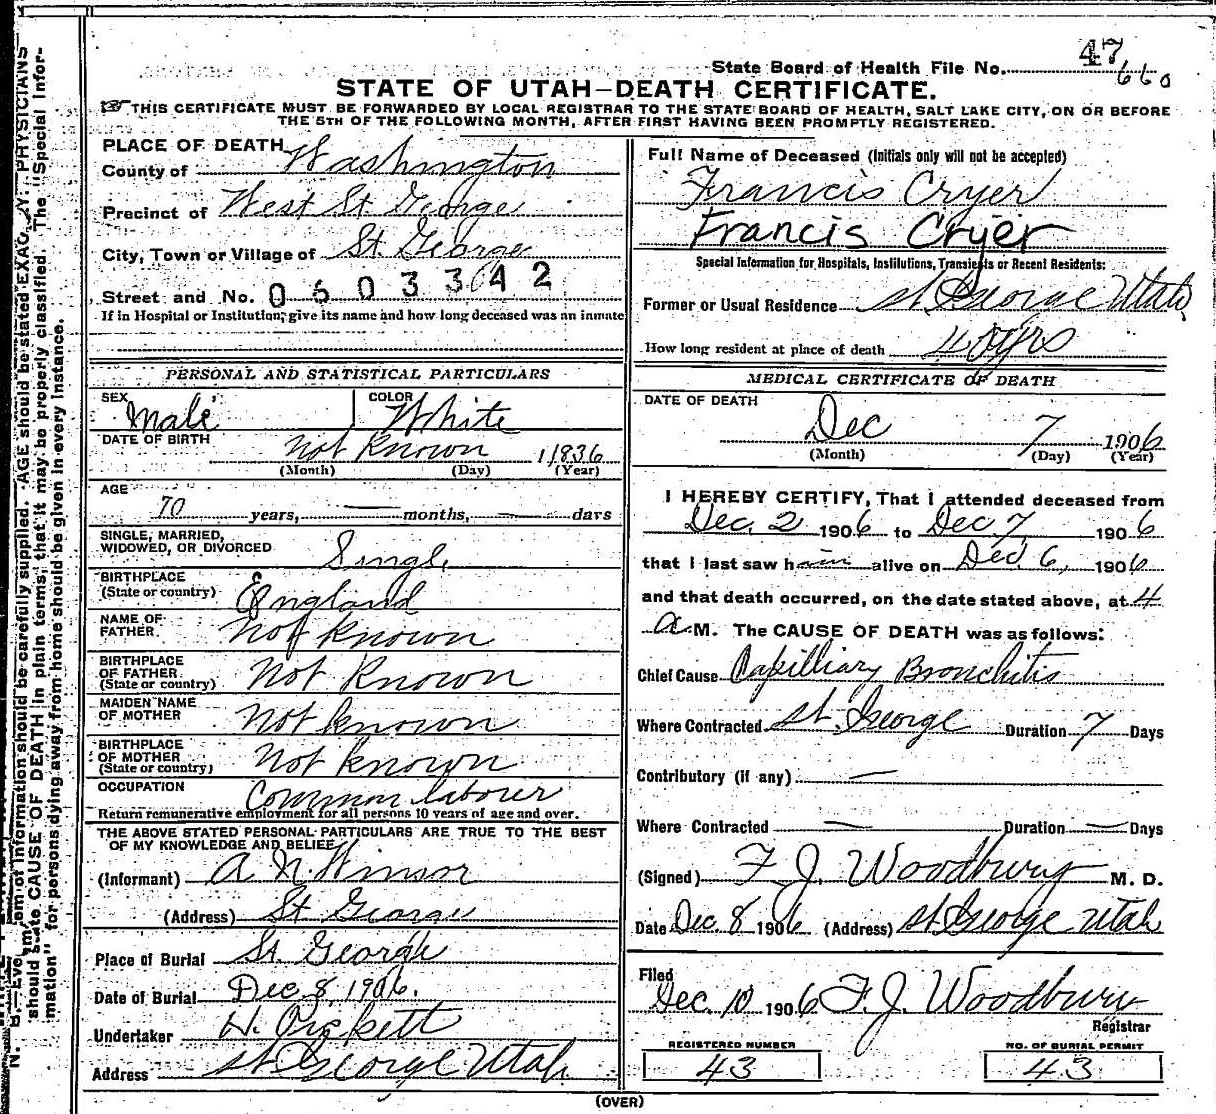 State Board of Health File No. 47
660
STATE OF UTAH—DEATH CERTIFICATE.
THIS CERTIFICATE MUST BE FORWARDED BY LOCAL REGISTRAR TO THE STATE BOARD OF HEALTH, SALT LAKE CITY, ON OR BEFORE
THE 5TH OF THE FOLLOWING MONTH, AFTER FIRST HAVING BEEN PROMPTLY REGISTERED.
PLACE OF DEATH
County of Washington
Precinct of West St George
City, Town or Village of St. George
Street and No. 0603342
If in Hospital or Institution, give its name and how long deceased was an inmate
PERSONAL AND STATISTICAL PARTICULARS
SEX Male COLOR White
DATE OF BIRTH not known 1836
(Month) (Day) (Year)
AGE
70 years, — months, — days
SINGLE, MARRIED,
WIDOWED, OR DIVORCED Single
BIRTHPLACE
(State or country) England
NAME OF
FATHER. Not known
BIRTHPLACE
OF FATHER
(State or country) Not Known
MAIDEN NAME
OF MOTHER Not known
BIRTHPLACE
OF MOTHER
(State or country) Not known
OCCUPATION Common labourer
Return remunerative employment for all persons 10 years of age and over.
THE ABOVE STATED PERSONAL PARTICULARS ARE TRUE TO THE BEST
OF MY KNOWLEDGE AND BELIEF
(Informant) A. N. Winsor
(Address) St George
Place of Burial St. George
Date of Burial Dec 8, 1906.
Undertaker W. Pickett
Address St. George Utah
Full Name of Deceased (Initials only will not be accepted)
Francis Cryer
Francis Cryer
Special Information for Hospitals, Institutions, Transients or Recent Residents:
Former or Usual Residence St George Utah,
How long resident at place of death 40 yrs
MEDICAL CERTIFICATE OF DEATH
DATE OF DEATH
Dec 7 1906
(Month) (Day) (Year)
I HEREBY CERTIFY, That I attended deceased from
Dec. 2 1906 to Dec 7, 1906
that I last saw him alive on Dec 6, 1906
and that death occurred, on the date stated above, at 4
a.M. The CAUSE OF DEATH was as follows:
Chief Cause Capilliary Bronchitis
Where Contracted St. George Duration 7 Days
Contributory (if any) —
Where Contracted — Duration — Days
(Signed) F. J. Woodbury M. D.
Date Dec. 8 1906 (Address) St George Utah
Filed
Dec. 10 1906 F. J. Woodbury
Registrar
REGISTERED NUMBER
43
NO. OF BURIAL PERMIT
43
(OVER)
information should be carefully supplied. AGE should be stated PHYSICIANS
should state CAUSE OF DEATH in plain terms, that it may be properly classified. The "Special Infor-
mation" for persons dying away from home should be given in every instance.